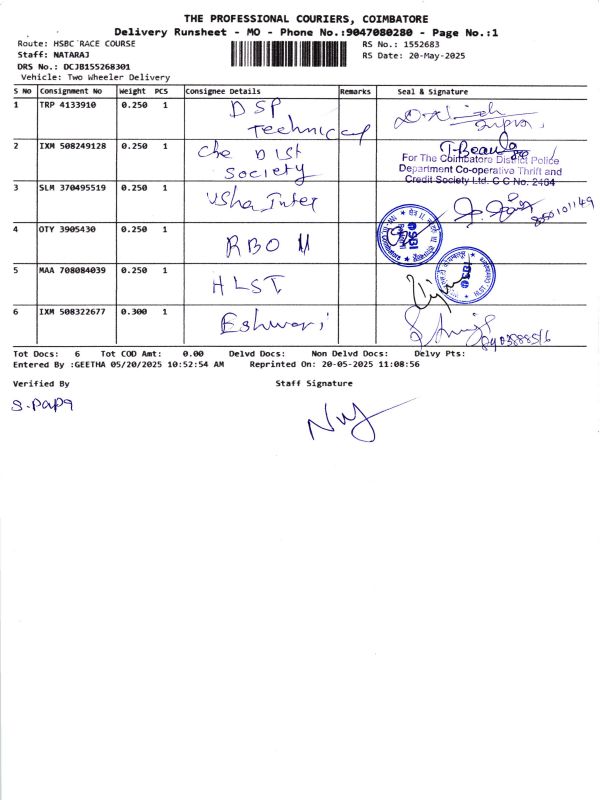 THE PROFESSIONAL COURIERS, COIMBATORE
Delivery Runsheet - MO - Phone No.:9047080280 - Page No.:1
Route: HSBC RACE COURSE RS No.: 1552683
Staff: NATARAJ RS Date: 20-May-2025
DRS No.: DCJB155268301
Vehicle: Two Wheeler Delivery
S NO Consignment No Weight PCS Consignee Details Remarks Seal & Signature
1 TRP 4133910 0.250 1 DSP
Technical
2 IXM 508249128 0.250 1 Che Dist
Society
T-Beaula
For The Coimbatore District Police
Department Co-operative Thrift and
Credit Society Ltd. C C No. 2464
3 SLM 370495519 0.250 1 Usha Inter
4 OTY 3905430 0.250 1 RBO II
SBI
5 MAA 708084039 0.250 1 HLST
6 IXM 508322677 0.300 1 Eshwari
Tot Docs: 6 Tot COD Amt: 0.00 Delvd Docs: Non Delvd Docs: Delvy Pts:
Entered By :GEETHA 05/20/2025 10:52:54 AM Reprinted On: 20-05-2025 11:08:56
Verified By Staff Signature
S.Papa